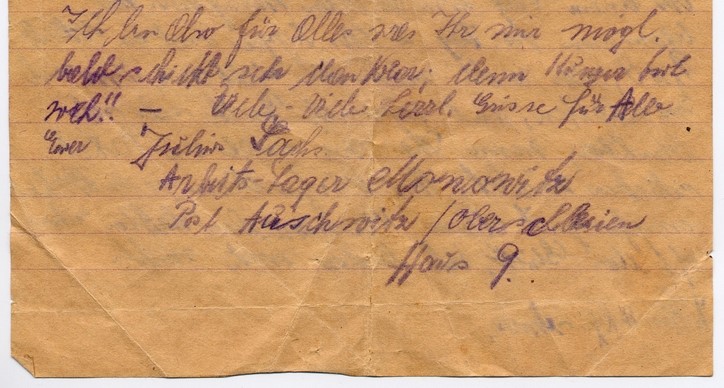 Ich bin also für Alles was Ihr mir mögl.
bald schickt sehr dankbar; denn Hunger tut
weh!! – Viele, viele herzl. Grüsse für Alle
Euer Julius Sachs
Arbeits-Lager Monowitz
Post Auschwitz / Oberschlesien
Haus 9.